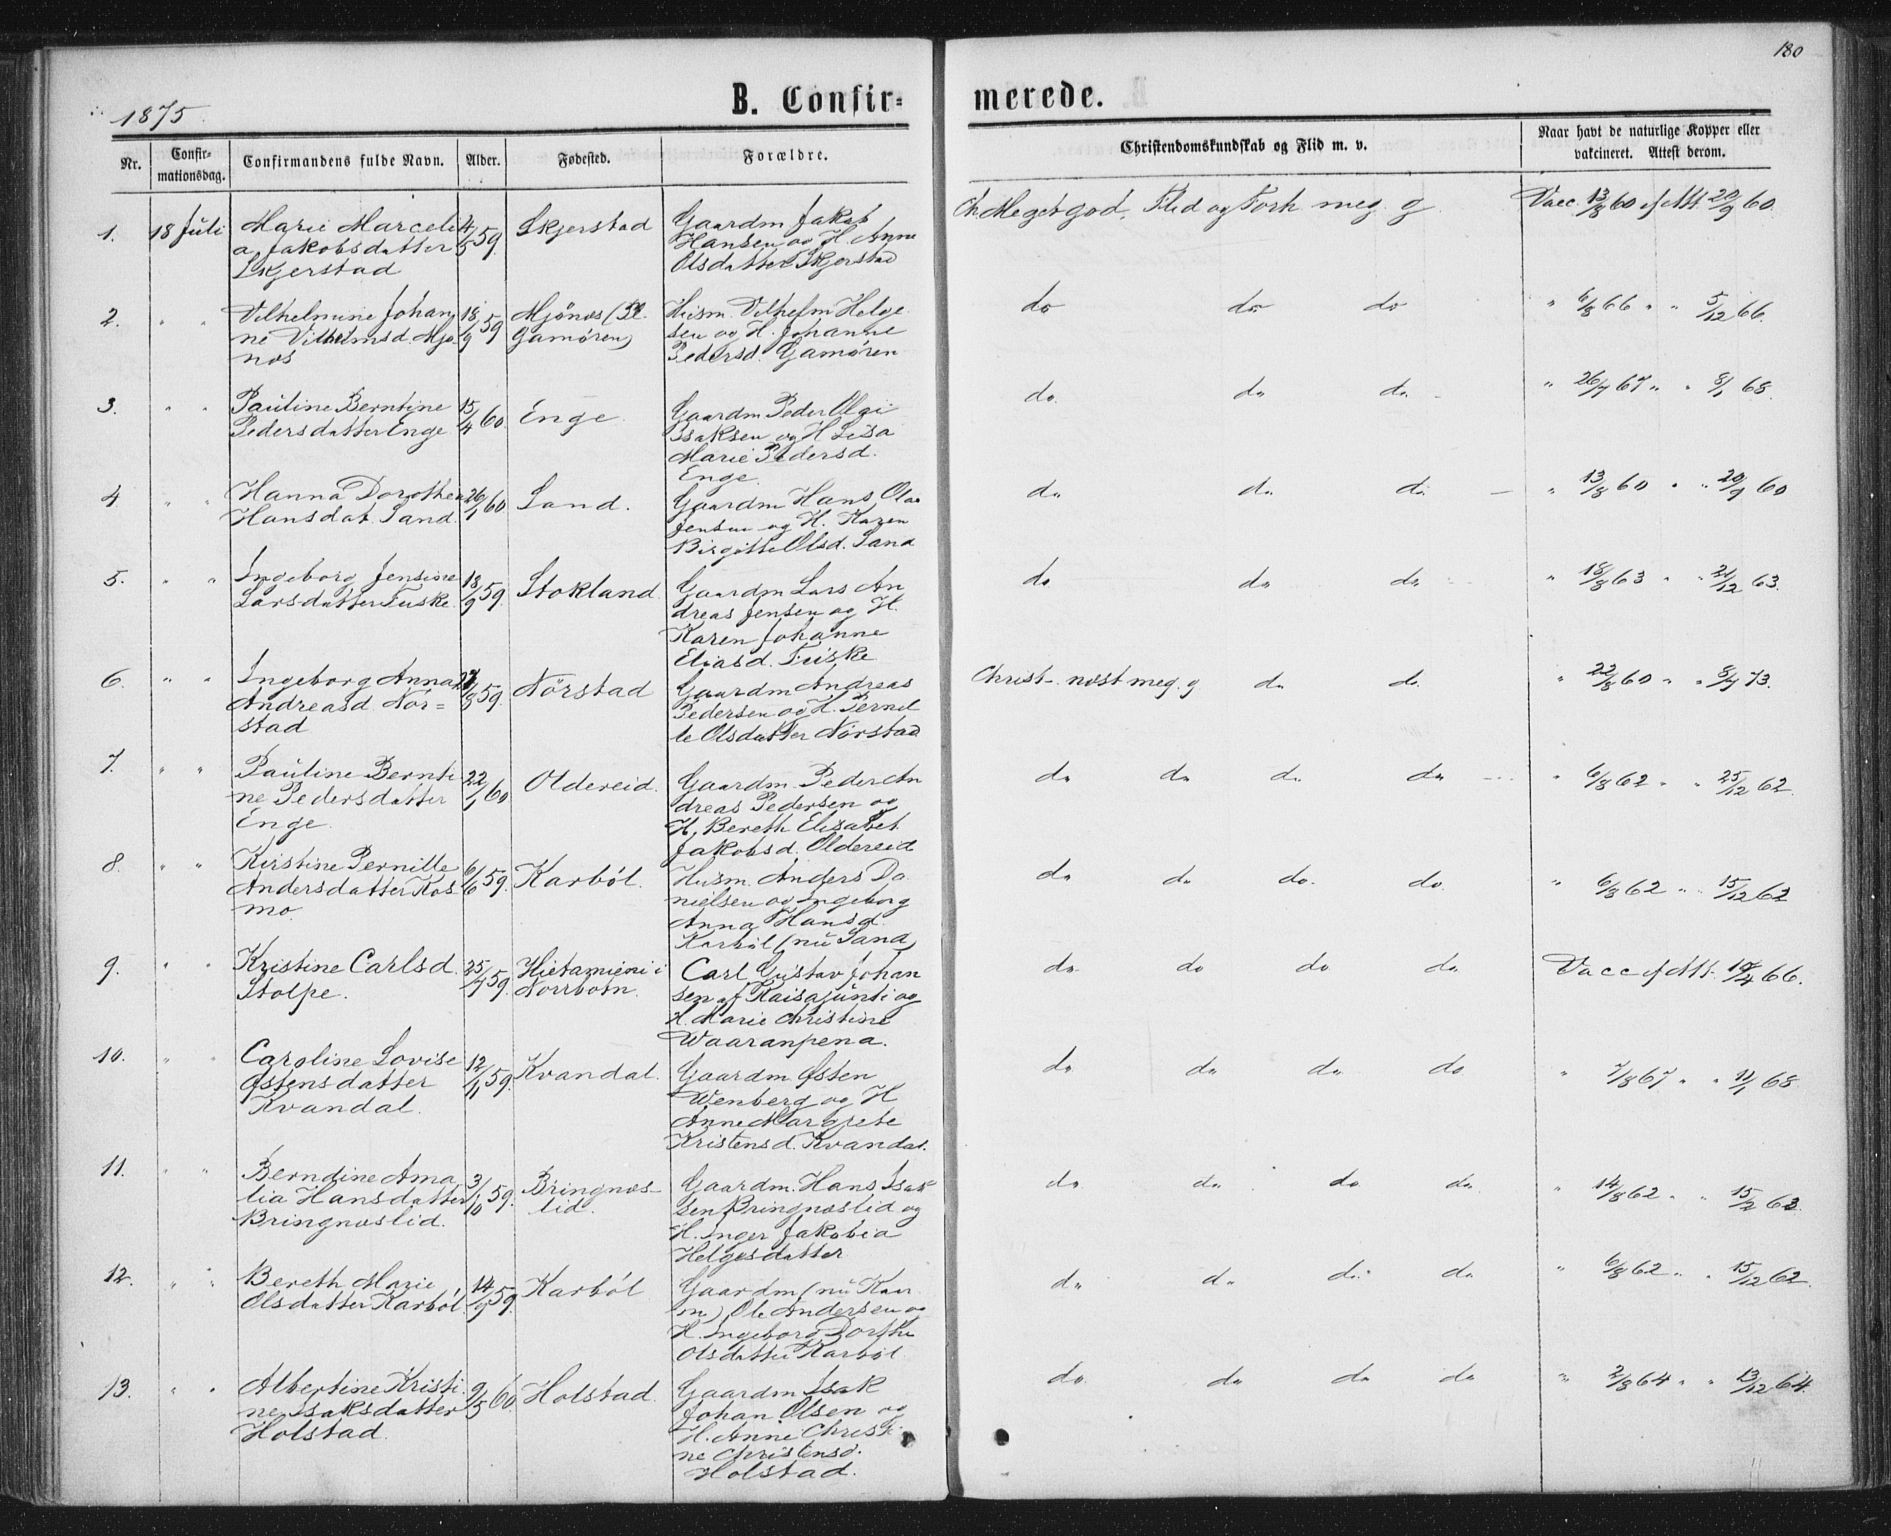 180
1875
B. Confir-
merede.
Nr.
Confir-
mationsdag.
Confirmandens fulde Navn.
Alder.
Fødested.
Forældre.
Christendomskundskab og Flid m. v.
Naar havt de naturlige Kopper eller
vakcineret. Attest derom.
1. 18 Juli
Marie Marceli
a Jakobsdatter
Skjerstad
4/5 59.
Skjerstad
Gaardm Jakob
Hansen og H. Anne
Olsdatter Skjerstad
Meget god, Flid og Forh meg. g
Vacc. 13/8 60 if Att. 20/9 60.
2. " "
Vilhelmine Johan
ne Vilhelmsd. Mjø
næs
18/9 59
Mjönæs (Pl.
Gamøren)
Husm. Vilhelm Helge
sen og H. Johanne
Pedersd. Gamøren
do do do
" 6/8 66 " " 5/12 66.
3. " "
Pauline Berntine
Pedersdatter Enge
15/4 60.
Enge.
Gaardm Peder Olai
Isaksen og H Lisa
Marie Pedersd.
Enge.
do. do do
" 26/7 67 " " 8/1 68.
4 " "
Hanna Dorothea
Hansdat. Sand.
26/1 60
Sand.
Gaardm Hans Olai
Jensen og H. Karen
Birgitte Olsd. Sand
do do. do.
" 13/8 60 " " 20/9 60
5. " "
Ingeborg Jensine
Larsdatter Fuske.
18/9 59.
Stokland.
Gaardm Lars An
dreas Jensen og H.
Karen Johanne
Eliasd. Fuske
do do do
" 18/8 63 " " 21/12 63.
6. " "
Ingeborg Anna
Andreasd Nór=
stad
59.
Nörstad
Gaardm Andreas
Pedersen og H. Pernil
le Olsdatter Nórstad
Christ. næst meg. g do do.
" 22/8 60 " " 8/7 73.
7. " "
Pauline Bernti
ne Pedersdatter
Enge.
22/1 60
Oldereid.
Gaardm. Peder An
dreas Pedersen og
H. Bereth Elisabet
Jakobsd. Oldereid
do do do do
" 6/8 62 " " 25/12 62.
8. " "
Kristine Pernille
Andersdatter Kos
mo.
6/6 59.
Karból.
Husm. Anders Da
nielsen og Ingeborg
Anna Hansd.
Karból (nu Sand)
do do do. do.
" 6/8 62 " " 15/12 62
9. " "
Kristine Carlsd.
Stolpe.
25/7 59.
Hietamieni i
Norrbotn.
Carl Gustav Johan
sen af Kaisajunti og
H. Marie Christine
Waaranpena.
do do do do
Vacc if Att. 19/4 66.
10. " "
Caroline Lovise
Østensdatter
Kvandal.
12/1 59.
Kvandal.
Gaardm Østen
Wenberg og H
Anne Margrete
Kristensd. Kvandal.
do do do do
" 7/8 67. " " 11/1 68
11. " "
Berndine Ama
lia Hansdatter
Bringnæslid.
3/10 59.
Bringnæs-
lid.
Gaardm. Hans Isak
sen Bringnæslid og
H. Inger Jakobia
Helgesdatter
do do do do
" 14/8 62 " " 15/12 62.
12. " "
Bereth Marie
Olsdatter Karból.
14/9 59.
Karból
Gaardm (nu Kaar
m) Ole Andersen og
H. Ingeborg Dorthe
Olsdatter Karból
do do do do
" 6/8 62 " " 15/12 62.
13. " "
Albertine Kristi
ne Isaksdatter
Holstad.
9/5 60.
Holstad.
Gaardm Isak
Johan Olsen og
H. Anne Christi
ne Christensd.
Holstad.
do. do do do
" 2/8 64 " " 13/12 64.